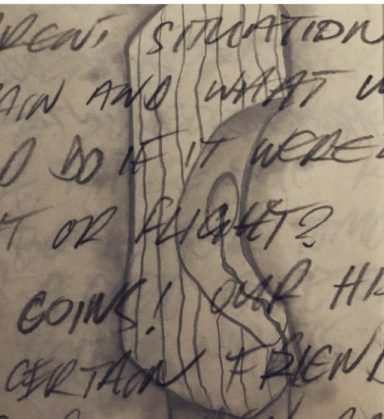 RENT SITUATION
AIN AND WHAT W
D DO IF IT WERE
T OR FLIGHT?
GOING! OUR HA
CERTAIN FRIEND